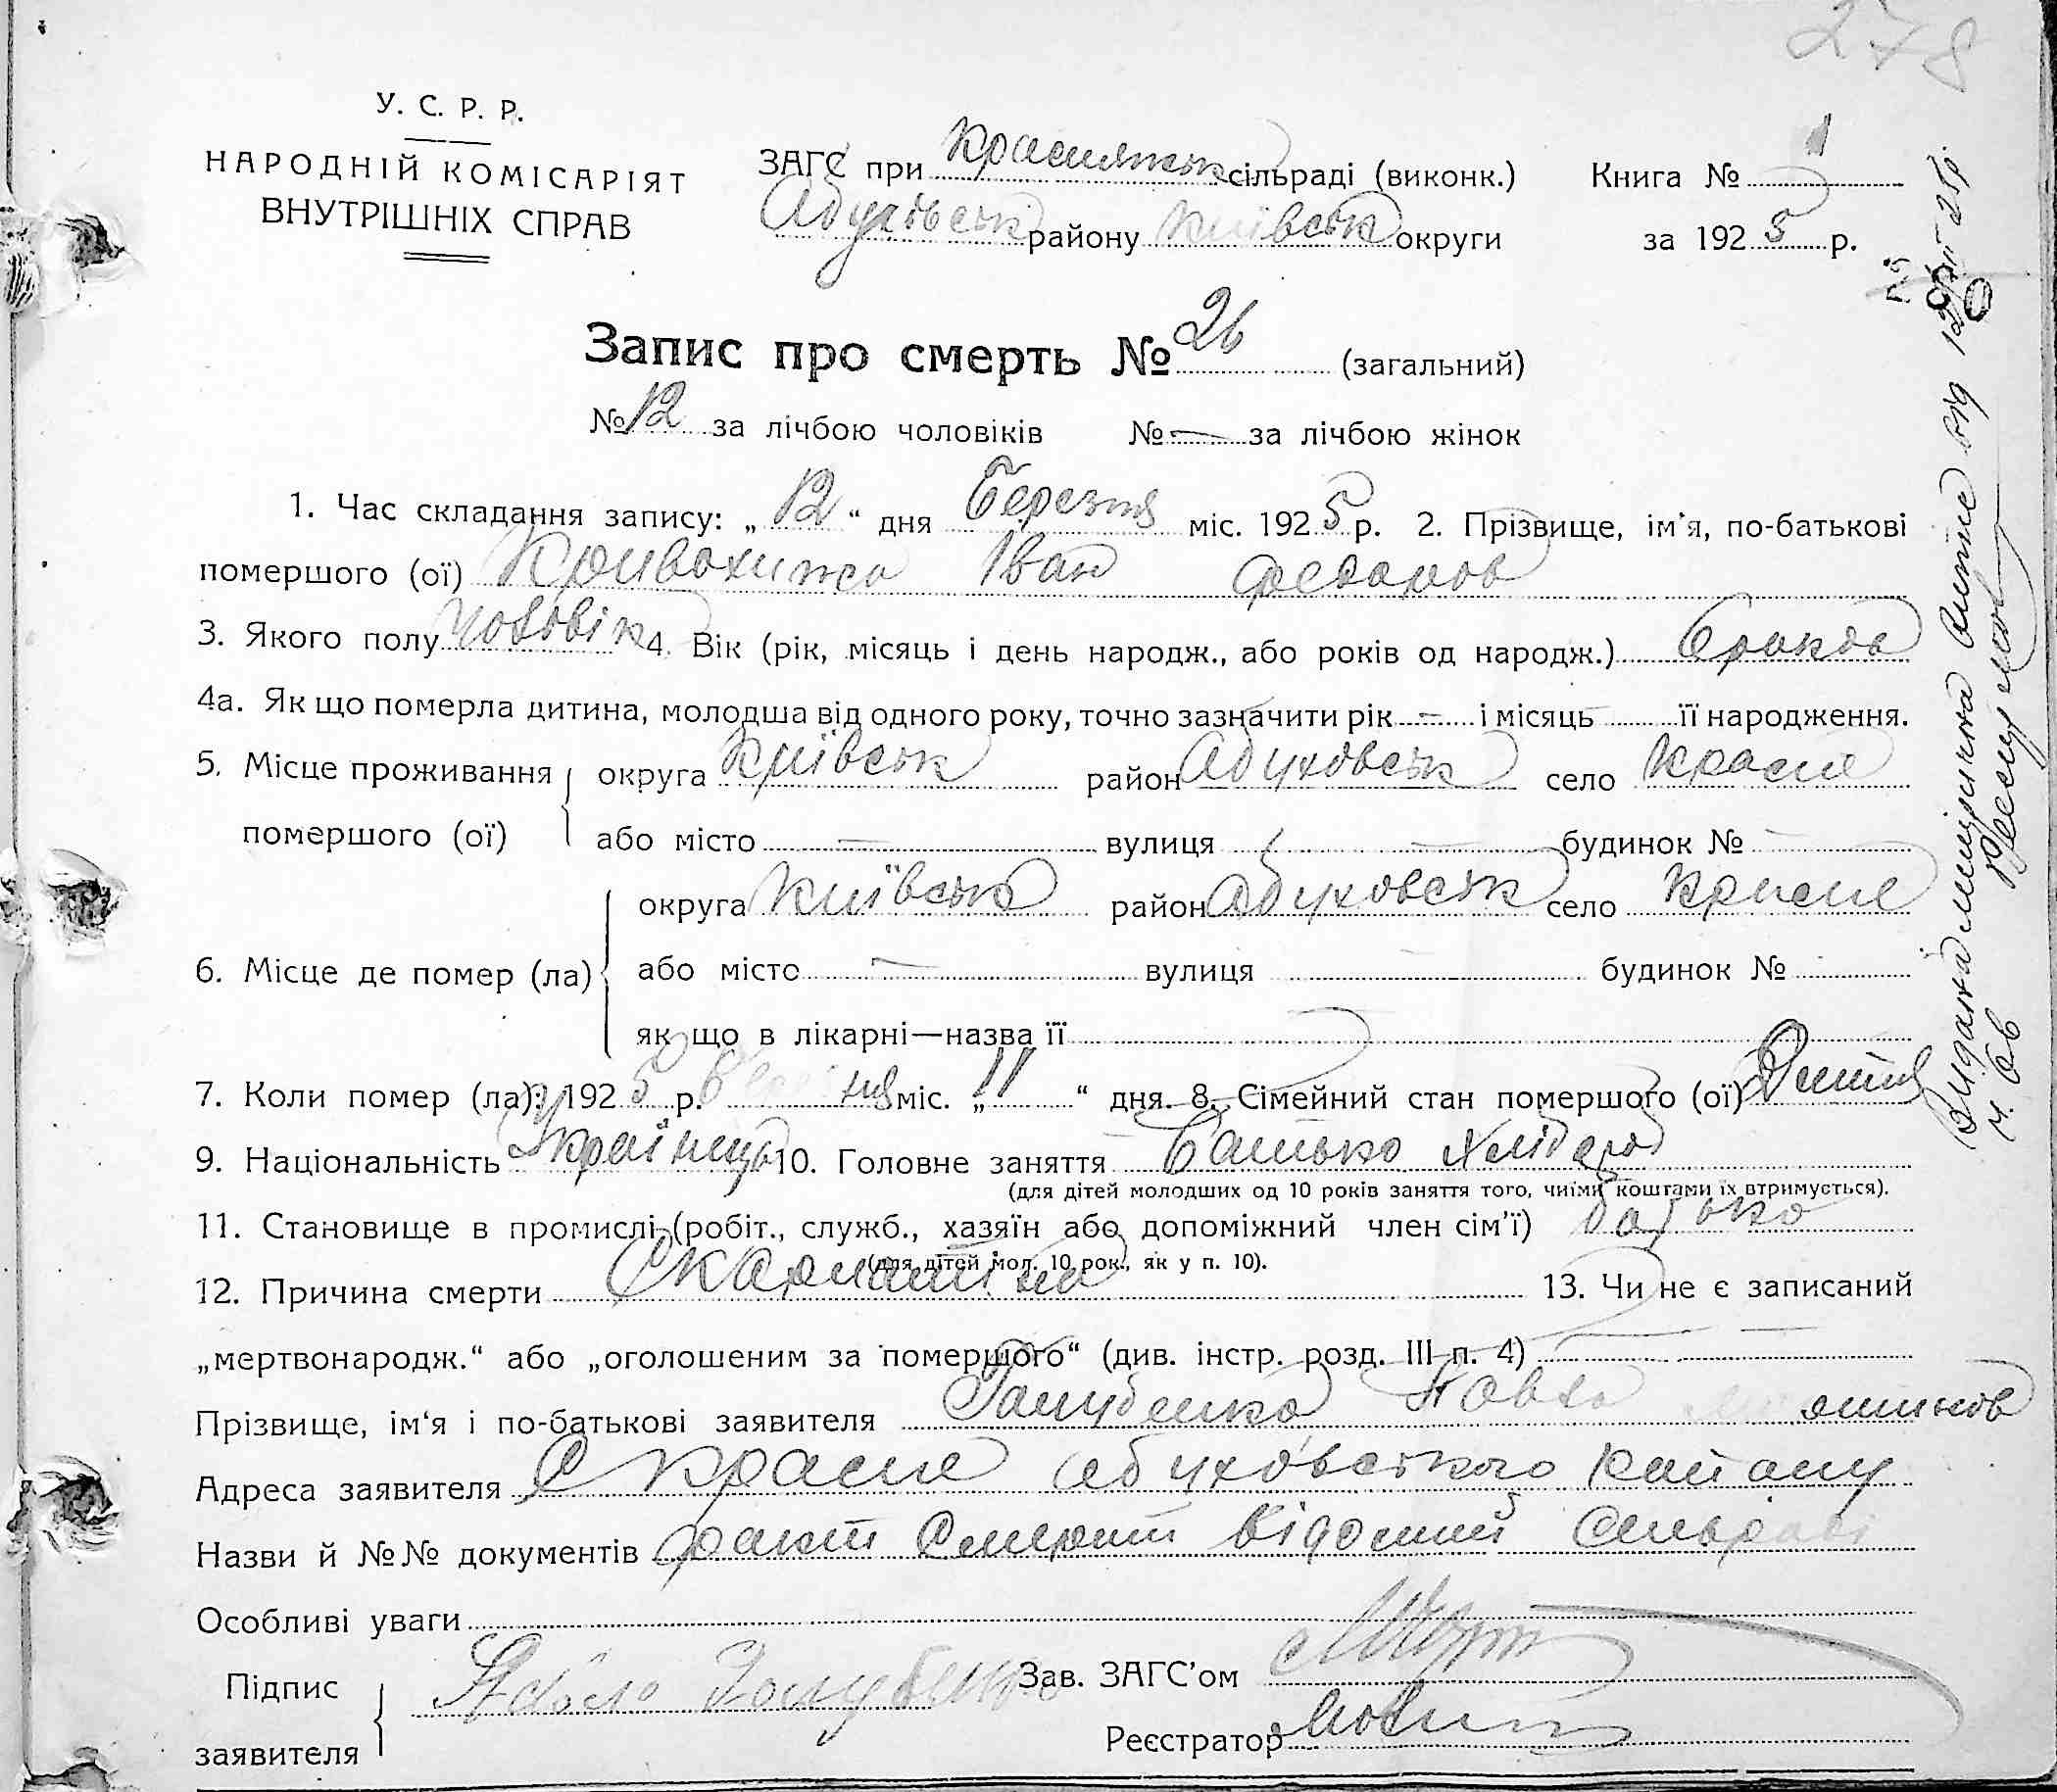 278
У. С. Р. Р.
НАРОДНІЙ КОМІСАРІЯТ
ВНУТРІШНІХ СПРАВ
ЗАГС при Краснянськ сільраді (виконк.)
Обухівськ району Київськ округи
Книга № 1
за 1925 р.
Запис про смерть № 26 (загальний)
№ 12 за лічбою чоловіків № — за лічбою жінок
1. Час складання запису: „ 12 “ дня Березня міс. 1925 р. 2. Прізвище, ім'я, по-батькові
помершого (ої) Кривохижа Іван Федоров
3. Якого полу Чоловік 4. Вік (рік, місяць і день народж., або років од народж.) 6 роков
4а. Як що померла дитина, молодша від одного року, точно зазначити рік — і місяць її народження.
5. Місце проживання помершого (ої) округа Київськ район Обуховськ село Красне
або місто — вулиця — будинок № —
6. Місце де помер (ла) округа Київськ район Обуховськ село Красне
або місто — вулиця будинок №
як що в лікарні—назва її
7. Коли помер (ла): 1925 р. міс. „ 11 “ дня. 8. Сімейний стан помершого (ої) Дитя
9. Національність Українець 10. Головне заняття Батько хлібороб
(для дітей молодших од 10 років заняття того, чиїми коштами їх втримується).
11. Становище в промислі (робіт., служб., хазяїн або допоміжний член сім'ї) батько
(для дітей мол. 10 рок., як у п. 10).
12. Причина смерти Скарлатина 13. Чи не є записаний
„мертвонародж.“ або „оголошеним за помершого“ (див. інстр. розд. III п. 4) —
Прізвище, ім'я і по-батькові заявителя Голубенко Павло
Адреса заявителя С Красне Обуховського Району
Назви й №№ документів факт Смерти Відомий Сільраді
Особливі уваги
Підпис заявителя Павло Голубенко
Зав. ЗАГС'ом
Реєстратор